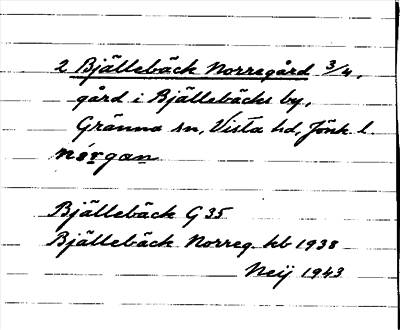 2 Bjällebäck Norregård 3/4,
gård i Bjällebäcks by,
Gränna sn, Vista hd, Jönk. l.
nórgan
Bjällebäck G 35
Bjällebäck Norreg. kb 1938
Neij 1943